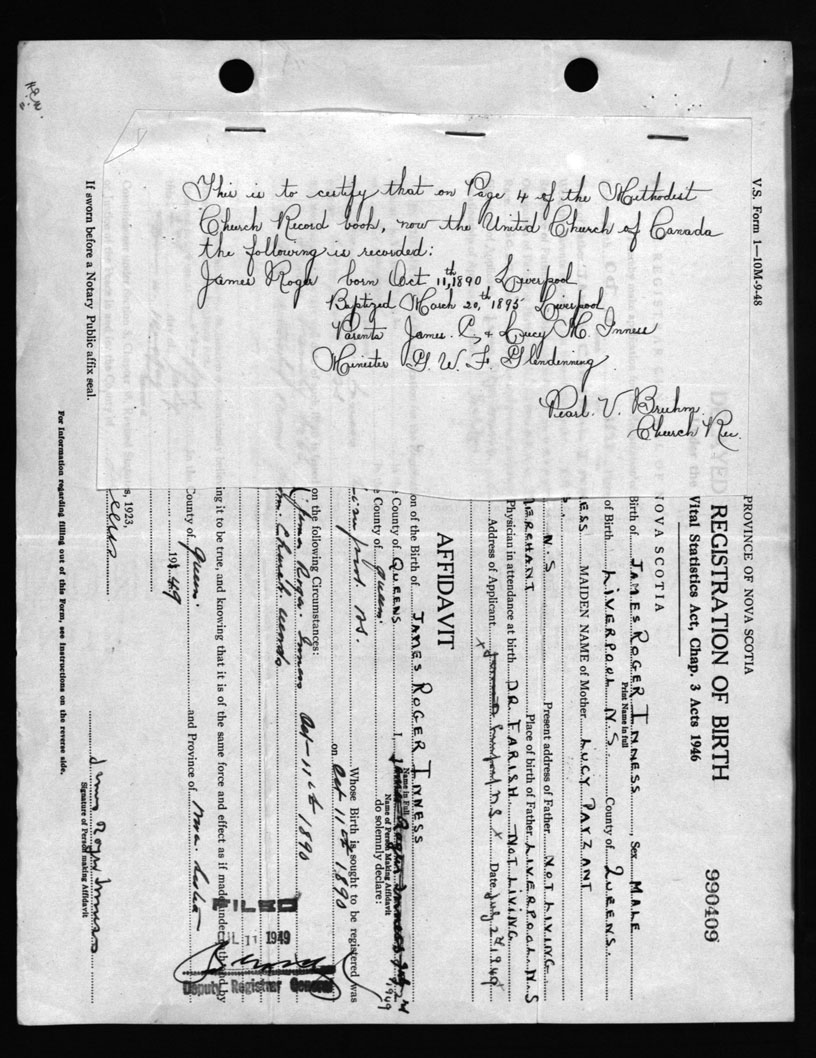 This is to certify that on Page 4 of the Methodist
Church Record book, now the United Church of Canada
the following is recorded:
James Roger born Oct 11,th 1890 Liverpool
Baptized March 20,th 1895 Liverpool
Parents James. C, & Lucy M. Inness
Minister G. W. F. Glendenning
Pearl. V. Bruhm.
Church Rec.
V.S. Form 1—10M-9-48
PROVINCE OF NOVA SCOTIA
REGISTRATION OF BIRTH
990409
Vital Statistics Act, Chap. 3 Acts 1946
NOVA SCOTIA
Birth of JAMES ROGER INNESS, Sex MALE
Print Name in full
of Birth LIVERPOOL N.S. County of QUEENS.
ESS MAIDEN NAME of Mother LUCY PAYZANT
N.S Present address of Father NOT LIVING
MERCHANT Place of birth of Father LIVERPOOL N.S
Physician in attendance at birth DR FARISH. NOT LIVING
Address of Applicant Date July 2nd 1949
AFFIDAVIT
on of the Birth of JAMES ROGER INNESS
Name in Full
County of QUEENS I,
Name of Person Making Affidavit
County of Queens do solemnly declare:
Whose Birth is sought to be registered was
on Oct 11th 1890
on the following Circumstances:
James Roger Inness Oct-11th 1890
Church records
ing it to be true, and knowing that it is of the same force and effect as if made under
County of Queens and Province of Nova Scotia
1949
FILED
1949
Deputy Registrar General
s, 1923,
Signature of Person making Affidavit
If sworn before a Notary Public affix seal.
For Information regarding filling out of this Form, see Instructions on the reverse side.